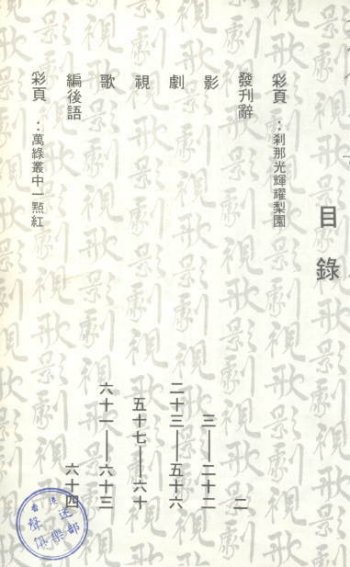 目錄
彩頁：剎那光輝耀梨園
發刊辭 二
影 三——二十二
劇 二十三——五十六
視 五十七——六十
歌 六十一——六十三
編後語 六十四
彩頁：萬綠叢中一點紅